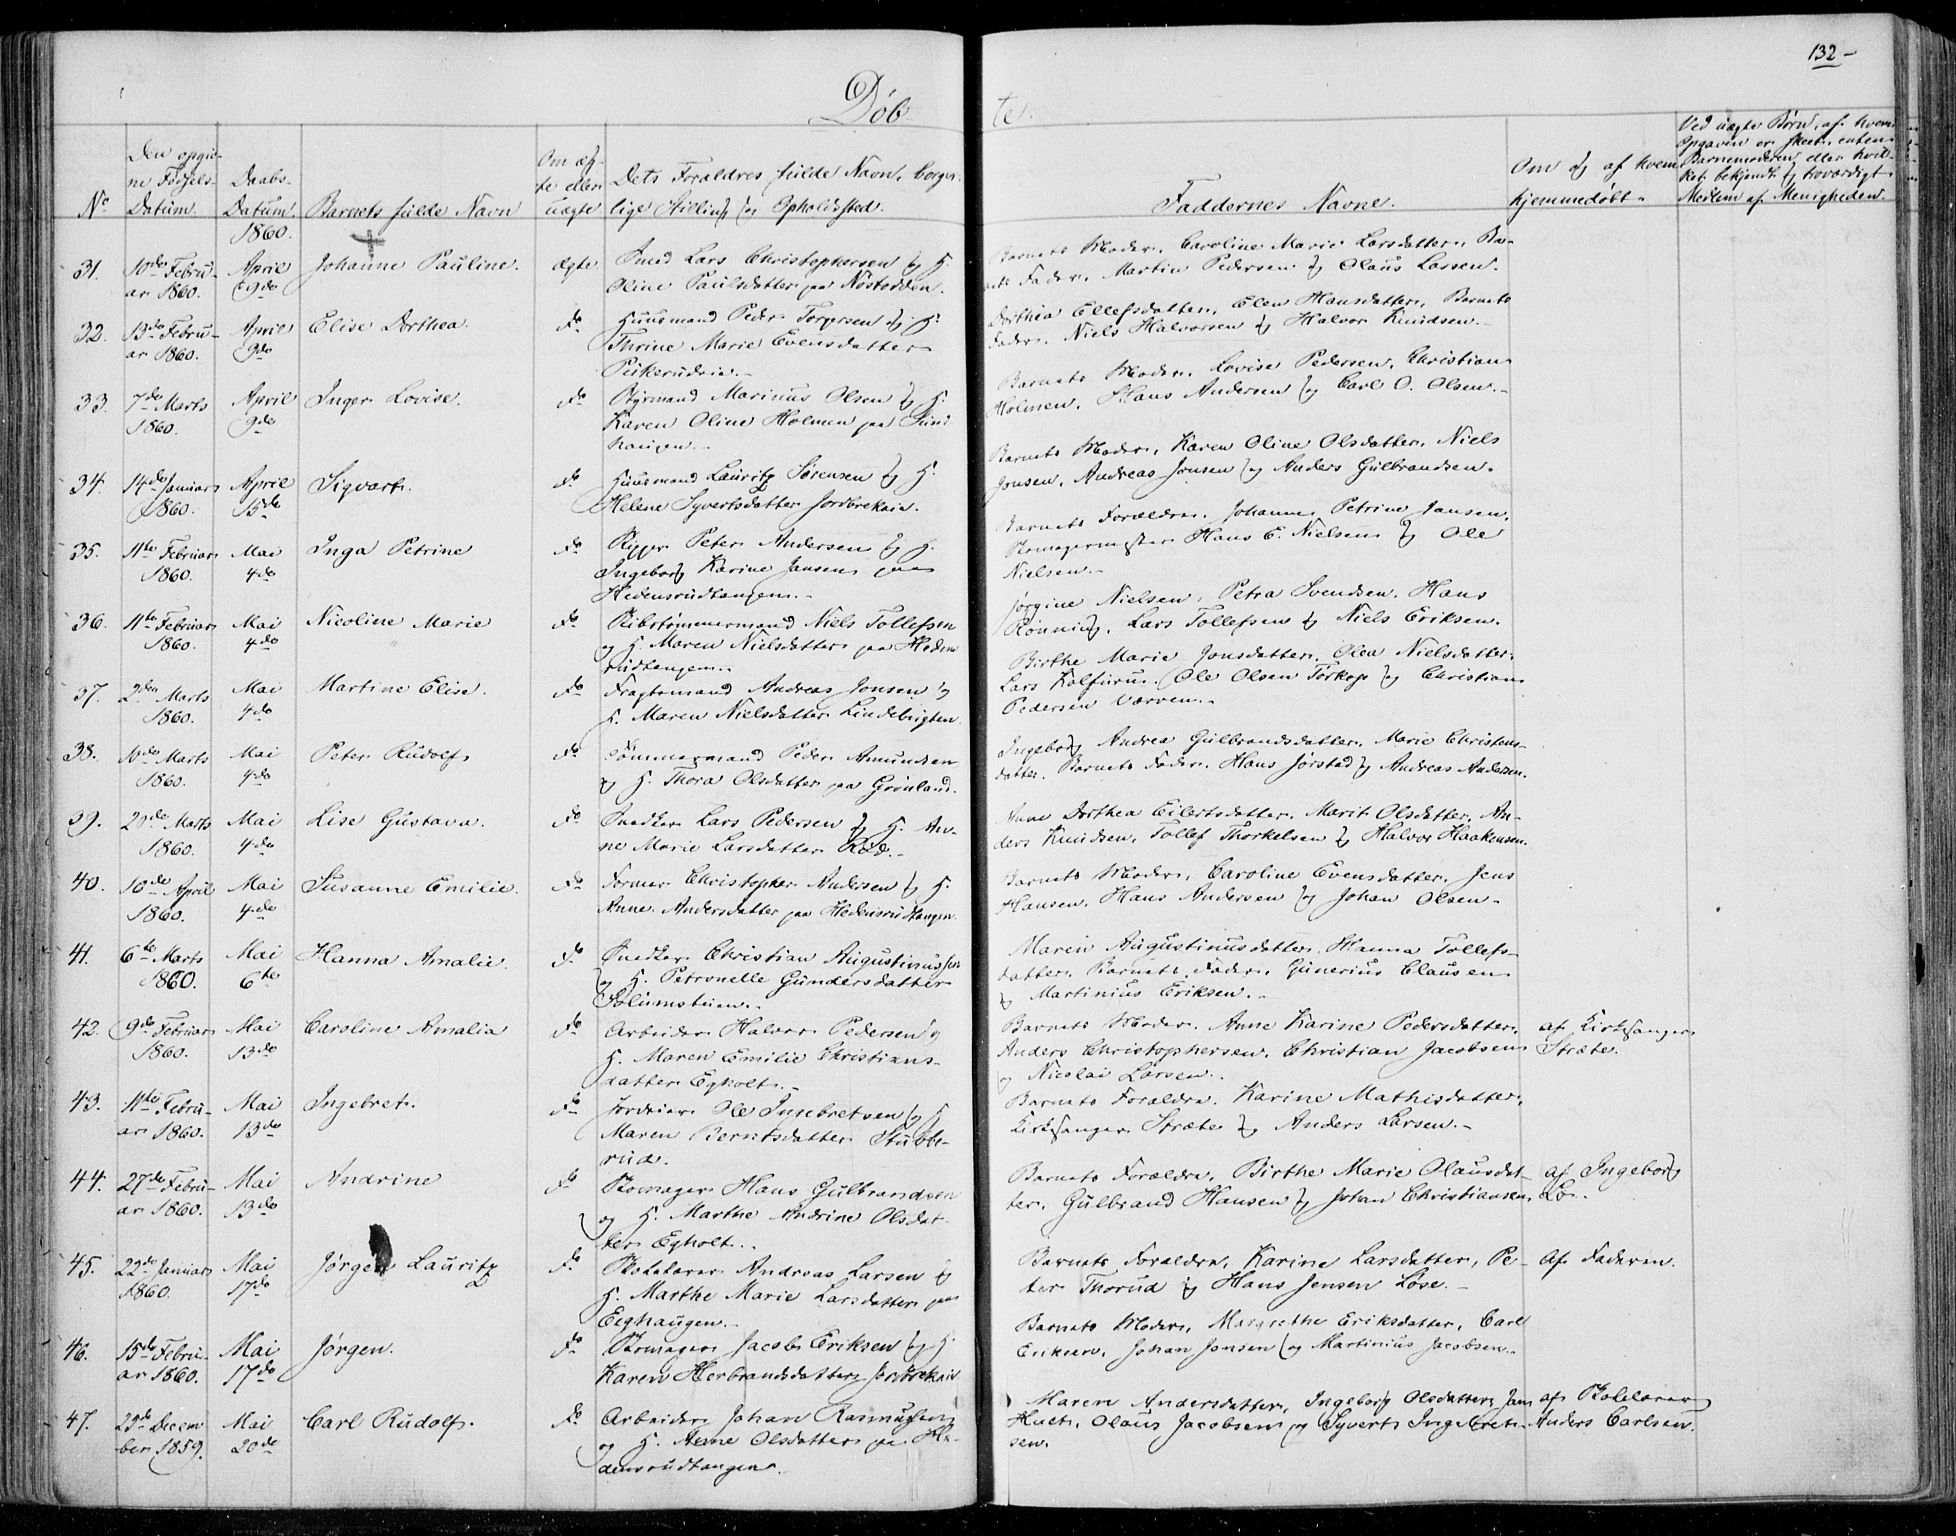 132-
Døb
te.
No
Den opgiv-
ne Fødsels-
Datum.
Daabs-
Datum.
Barnets fulde Navn
Om æg-
te eller
uægte
Dets Forældres fulde Navn, borger-
lige Stilling og Opholdssted.
Faddernes Navne.
Om og af hvem
hjemmedøbt.
Ved uægte Børn, af hvem
Opgaven er skeet, enten
Barnemoderen eller hvil-
ket bekjendt og troværdigt
Medlem af Menigheden.
1860.
31. 10de Febru-
ar 1860.
April
9de
Johanne Pauline.
ægte
Smed Lars Christophersen og H.
Oline Paulsdatter paa Nøstodden.
Barnets Moder, Caroline Marie Larsdatter, Bar-
nets Fader, Martin Pedersen og Olaus Larsen.
32. 13de Febru-
ar 1860.
April
9de
Elise Dorthea.
do
Huusmand Peder Torgersen og H.
Thrine Marie Evensdatter
Pukerudeie.-
Dorthea Ellefsdatter, Elen Hansdatter, Barnets
Fader, Niels Halvorsen og Halvor Knudsen.-
33. 7de Marts
1860.
April
9de
Inger Lovise.
do
Styrmand Marinus Olsen og H.
Karen Oline Holmen paa
haugen.-
Barnets Moder, Lovise Pedersen, Christian
Holmen, Hans Andersen og Carl O. Olsen.-
34. 14de Januar
1860.
April
15de
Sigvart.
do
Huusmand Lauritz Sørensen og H.
Helene Syvertsdatter Jordbrekeie.
Barnets Moder, Karen Oline Olsdatter, Niels
Jonsen, Andreas Jonsen og Anders Gulbrandsen.
35. 11te Februar
1860.
Mai
4de
Inga Petrine
do
Rigger Peter Andersen og H.
Ingeborg Karine Jansen paa
Hedensrudtangen.-
Barnets Forældre, Johanne Petrine Jansen,
Skomagermester Hans E. Nielsen og Ole
Nielsen.-
36. 11te Februar
1860.
Mai
4de
Nicoline Marie
do
Skibstømmermand Niels Tollefsen
og H. Maren Nielsdatter paa Hedens-
rudtangen.-
Jørgine Nielsen, Petra Svendsen, Hans
Rønning, Lars Tollefsen og Niels Eriksen.
37. 2den Marts
1860.
Mai
4de
Martine Elise.
do
Fragtemand Andreas Jonsen og
H. Maren Nielsdatter Lindebugten.
Birthe Marie Jonsdatter, Olea Nielsdatter,
Lars Kolfurus, Ole Olsen Torkop og Christian
Pedersen Værven.-
38. 10de Marts
1860.
Mai
4de
Peter Rudolf.
do
Tømmermand Peder Amundsen
og H. Thora Olsdatter paa Grønland.
Ingeborg Andrea Gulbrandsdatter, Marie Christens-
datter, Barnets Fader, Hans Jørstad og Andreas Andersen.
39. 29de Marts
1860.
Mai
4de
Lise Gustava.
do
Snedker Lars Pedersen og H. An-
ne Marie Larsdatter Rød.-
Anne Dorthea Eilertsdatter, Marit Olsdatter, An-
ders Knudsen, Tollef Thorkelsen og Halvor Haakensen.
40. 10de April
1860.
Mai
4de
Susanne Emilie.
do
Former Christopher Andersen og H.
Anne Andersdatter paa Hedensrudtangen.
Barnets Moder, Caroline Evensdatter, Jens
Hansen, Hans Andersen og Johan Olsen.-
41. 6te Marts
1860.
Mai
6te
Hanna Amalie.
do
Snedker Christian Augustinussen
og H. Petronelle Gundersdatter
Solumsteien.-
Maren Augustinusdatter, Hanna Tollefs-
datter, Barnets Fader, Gunerius Clausen
og Martinius Eriksen.-
42. 9de Februar
1860.
Mai
13de
Caroline Amalia
do
Arbeider Halvor Pedersen og
H. Maren Emilie Christians-
datter Egholt.-
Barnets Moder, Anne Karine Pedersdatter,
Anders Christophersen, Christian Jacobsen
og Nicolai Larsen.-
af Kirkesanger
Stræte.
43. 11te Febru-
ar 1860.
Mai
13de
Ingebret.
do
Jordeier Ole Ingebretsen og H
Maren Berntsdatter Stubbe-
rud.
Barnets Forældre, Karine Mathisdatter,
Kirkesanger Stræte og Anders Larsen.-
44. 27de Febru-
ar 1860.
Mai
13de
Andrine
do
Skomager Hans Gulbrandsen
og H. Marthe Andrine Olsdat-
ter Egholt.-
Barnets Forældre, Birthe Marie Olausdat-
ter, Gulbrand Hansen og Johan Christiansen
af Ingeborg
Lø.
45. 22de Januar
1860.
Mai
17de
Jørgen Lauritz
do
Skolelærer Andreas Larsen og
H. Marthe Marie Larsdatter paa
Eeghaugen.-
Barnets Forældre, Karine Larsdatter, Pe-
ter Thorud og Hans Jensen Løse.-
af Faderen.
46. 15de Febru-
ar 1860.
Mai
17de
Jørgen.
do
Skomager Jacob Eriksen og H.
Karen Herbrandsdatter Jordbrekeie
Barnets Moder, Margrethe Eriksdatter, Carl
Eriksen, Johan Jonsen og Martinius Jacobsen.-
47. 29de Decem
ber 1859.
Mai
20de
Carl Rudolf.
do
Arbeider Johan Rasmussen
og H. Anne Olsdatter paa He-
densrudtangen.
Maren Andersdatter, Ingeborg Olsdatter, Jan
Hult, Olaus Jacobsen og Syvert Ingebret-
sen.
af Skolelærer
Anders Carlsen.